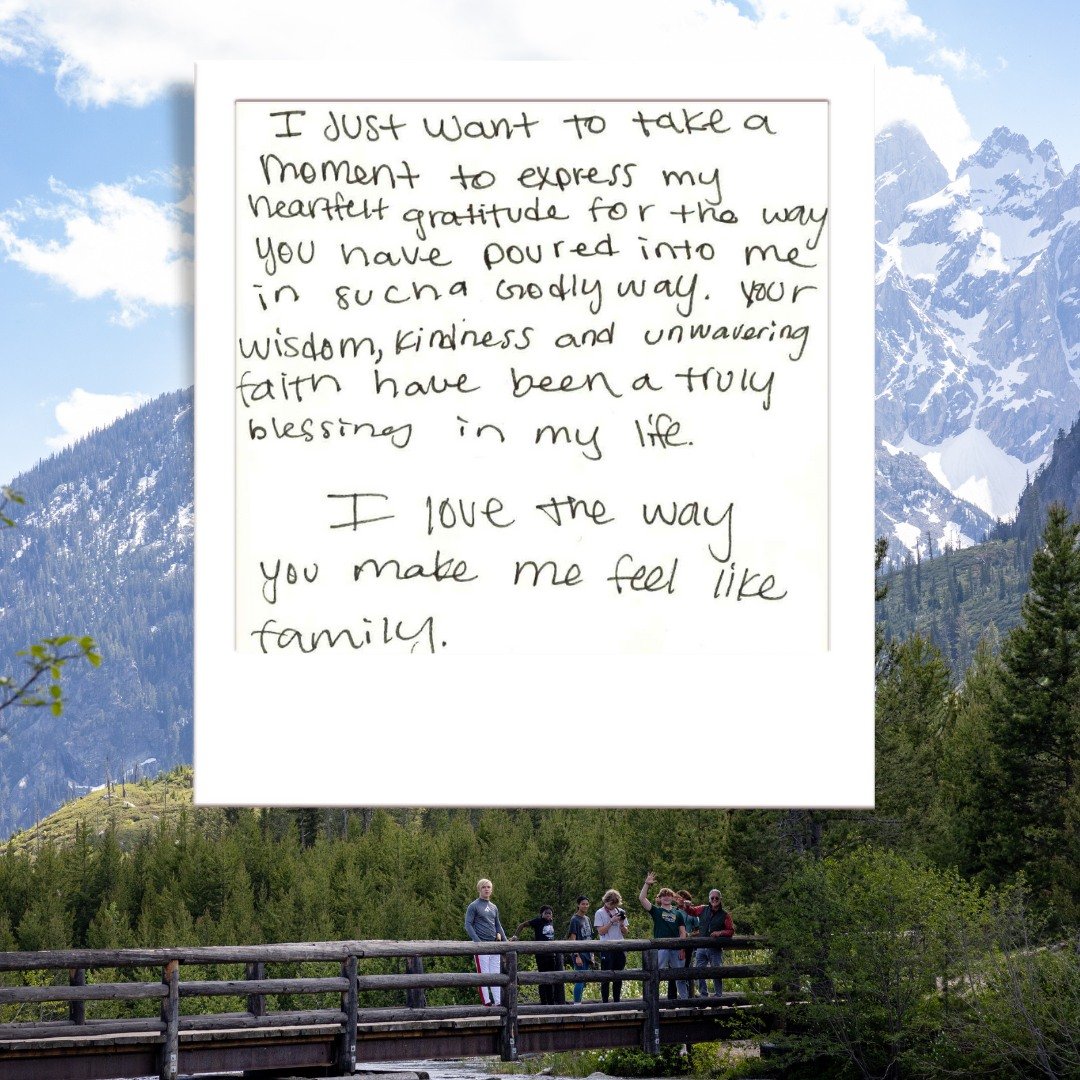 I Just want to take a
moment to express my
heartfelt gratitude for the way
you have poured into me
in such a Godly way. Your
wisdom, kindness and unwavering
faith have been a truly
blessing in my life.
I love the way
you make me feel like
family.